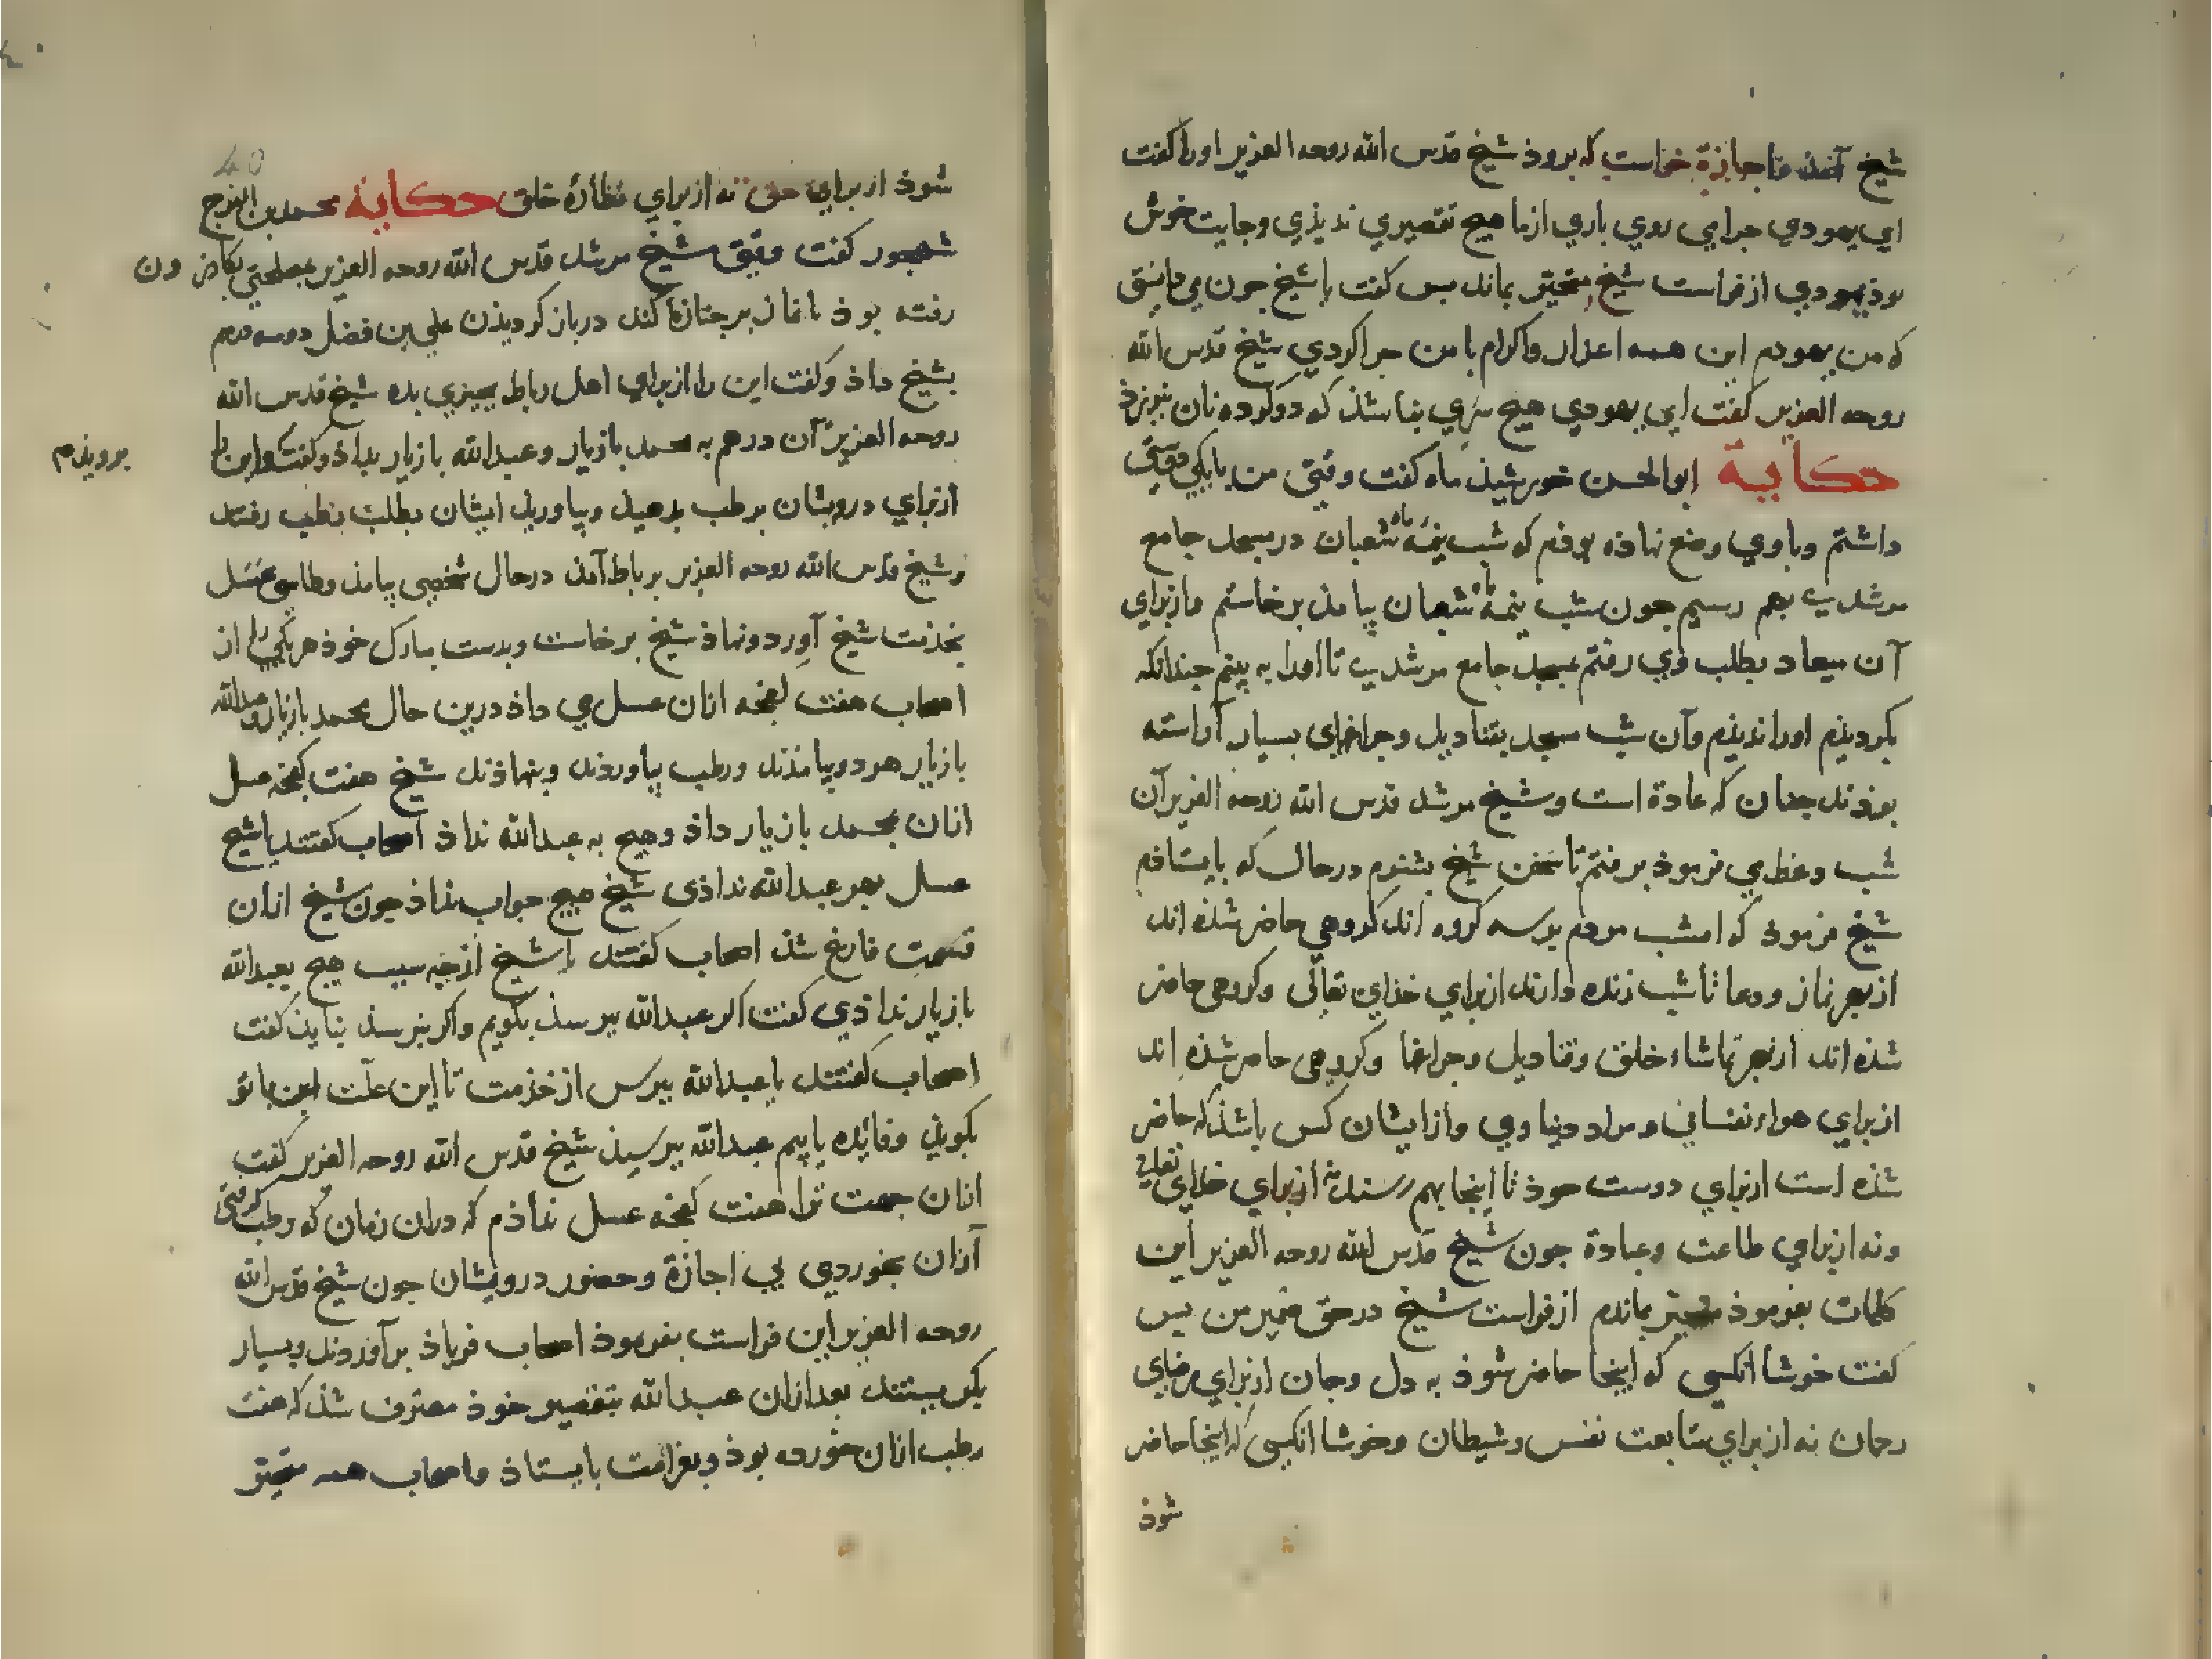 شیخ آمد تا اجازة خواست که بروذ شیخ قدس الله روحه العزیز اورا کفت
ای یهودی جرا می روی باری از ما هیچ تقصیری ندیذی وجایت خوش
بوذ یهودی از فراست شیخ متحیّر بماند بس کفت یا شیخ جون می دانستی
که من یهودم این همه اعزاز واکرام با من جرا کردی شیخ قدس الله
روحه العزیز کفت ای یهودی هیچ سَری نباشذ که دو کرده نان نیرزذ
حكایة ابوالحسن خورشیذ ماه کفت وقتی من با یکی دوستی
داشتم وباوی وضع نهاذه بوذم که شب نیمه ماه شعبان در مسجد جامع
مرشدی بهم رسیم جون شب نیمه ماه شعبان بیامذ برخاستم واز برای
آن میعاد بطلب وی رفتم بمسجد جامع مرشدی تا اورا به بینم جندانکه
بکردیذم اورا ندیذم وآن شب مسجد بقنادیل وجراغهای بسیار آراسته
بوذند جنان که عادة است وشیخ مرشد قدس الله روحه العزیز آن
شب وعظ می فرموذ برفتم تا سخن شیخ بشنوم درحال که بایستاذم
شیخ فرموذ که امشب مردم برسه کروه اند کروهی حاضر شذه اند
از بهر نماز ودعا تا شب زنده دارند از برای خذای تعالی وکروهی حاضر
شذه اند از بهر تماشاء خلق وقنادیل وجراغها وکروهی حاضر شذه اند
از برای هواء نفسانی ومراد دنیاوی واز ایشان کس باشذ که حاضر
شذه است از برای دوست خوذ تا اینجا بهم رسند نه از برای خدای تعالی
ونه از برای طاعت وعبادة جون شیخ قدس الله روحه العزیز این
کلمات بفرموذ متحیّر بماندم از فراست شیخ در حق ضمیر من بس
کفت خوشا انکسی که اینجا حاضر شوذ به دل وجان از برای رضای
رحمان نه از برای متابعت نفس وشیطان وخوشا انکسی که اینجا حاضر
شوذ
40
شوذ از برای حق نه از برای نظارهٔ خلق حكایة محمد بن الفرج
شهجور کفت وقتی شیخ مرشد قدس الله روحه العزیز بمصلحتی بکازرون
رفته بوذ تا نماز بر جنازهٔ کند در باز کردیذن علی بن فضل دوسه درم
بشیخ داذ وکفت این را از برای اهل رباط بجیزی بده شیخ قدس الله
روحه العزیز آن درهم به محمد بازیار وعبدالله بازیار بداذ وکفت کو این را
برویذم
از برای درویشان برطب بدهیذ وبیاوریذ ایشان بطلب رطب رفتند
وشیخ قدس الله روحه العزیز برباط آمذ درحال شخصی بیامذ وطاسی عسل
بخذمت شیخ آورد ونهاذ شیخ برخاست وبدست مبارک خوذ هر یکی را از
اصحاب هفت کفجه ازان عسل می داذ درین حال محمد بازیار وعبدالله
بازیار هردو بیامذند ورطب بیاوردند وبنهاذند شیخ هفت کفجه عسل
ازان بمحمد بازیار داذ وهیچ به عبدالله نداذ اصحاب کفتند یا شیخ
عسل بهر عبدالله نداذی شیخ هیچ جواب نداذ جون شیخ ازان
قسمت فارغ شذ اصحاب کفتند یا شیخ از چه سبب هیچ بعبدالله
بازیار نداذی کفت اکر عبدالله ببرسذ بکویم واکر نبرسذ نبایذ کفت
اصحاب کفتند یا عبدالله ببرس از خذمت تا این علّت این با تو
بکویذ وفائده یابیم عبدالله ببرسیذ شیخ قدس الله روحه العزیز کفت
ازان جهت ترا هفت کفجه عسل نداذم که دران زمان که رطب کرفتی
ازان بخوردی بی اجازة وحضور درویشان جون شیخ قدس الله
روحه العزیز این فراست بفرموذ اصحاب فریاذ برآوردند وبسیار
بکریستند بعد ازان عبدالله بتقصیر خوذ معترف شذ که هفت
رطب ازان خورده بوذ وبغرامت بایستاذ واصحاب همه متحیّر